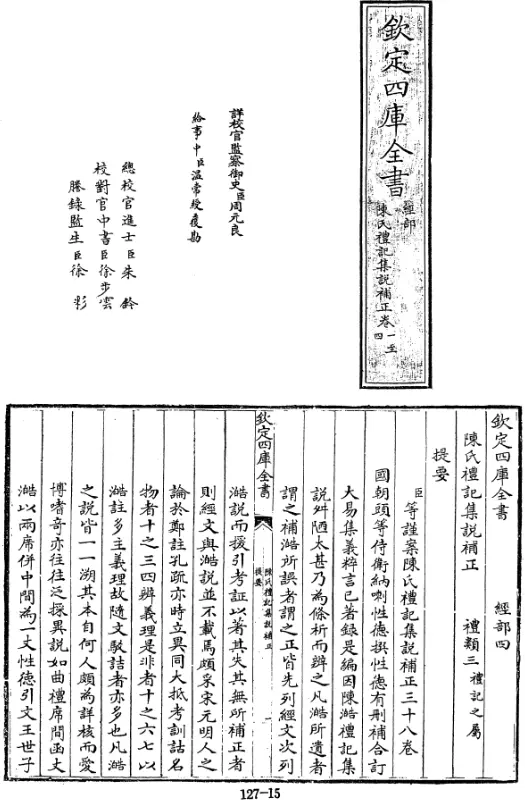 欽定四庫全書
經部
陳氏禮記集說補正卷一至四
詳校官監察御史臣周元良
給事中臣溫常綬覆勘
總校官進士臣朱鈐
校對官中書臣徐步雲
謄錄監生臣徐彩
欽定四庫全書 經部四
陳氏禮記集說補正 禮類三禮記之屬
提要
臣等謹案陳氏禮記集說補正三十八卷
國朝頭等侍衛納喇性德撰性德有刪補合訂
大易集義粹言已著錄是編因陳澔禮記集
說舛陋太甚乃為條析而辨之凡澔所遺者
謂之補澔所誤者謂之正皆先列經文次列
欽定四庫全書
陳氏禮記集說補正
提要
一
澔說而援引考証以著其失其無所補正者
則經文與澔說並不載焉頗采宋元明人之
論於鄭註孔疏亦時立異同大抵考訓詁名
物者十之三四辨義理是非者十之六七以
澔註多主義理故隨文駁詰者亦多也凡澔
之說皆一一溯其本自何人頗為詳核而愛
博嗜奇亦往往泛採異說如曲禮席間函丈
澔以兩席併中間為一丈性德引文王世子
127-15